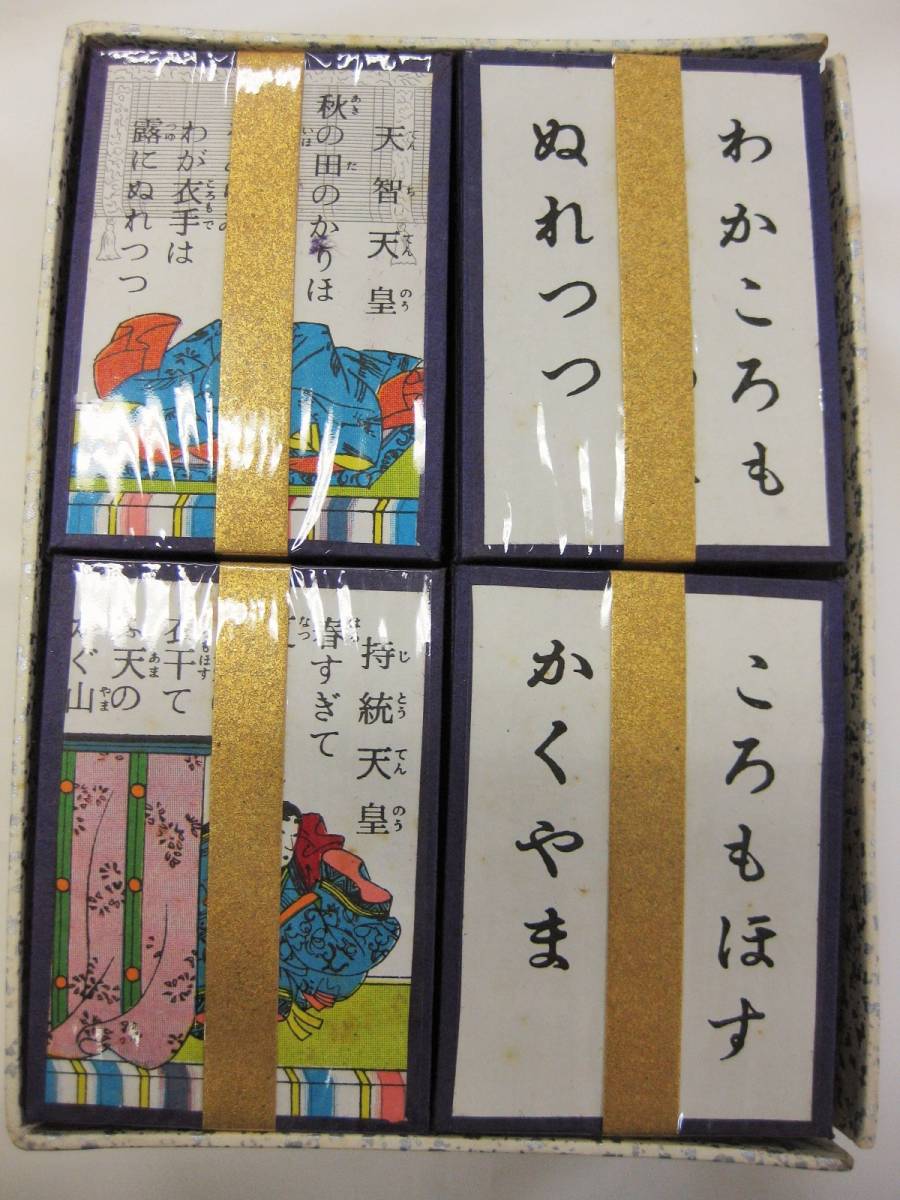 天智天皇
秋の田のかりほ
わが衣手は
露にぬれつつ
わかころも
ぬれつつ
持統天皇
春すぎて
衣干て
天の
ぐ山
ころもほす
かくやま